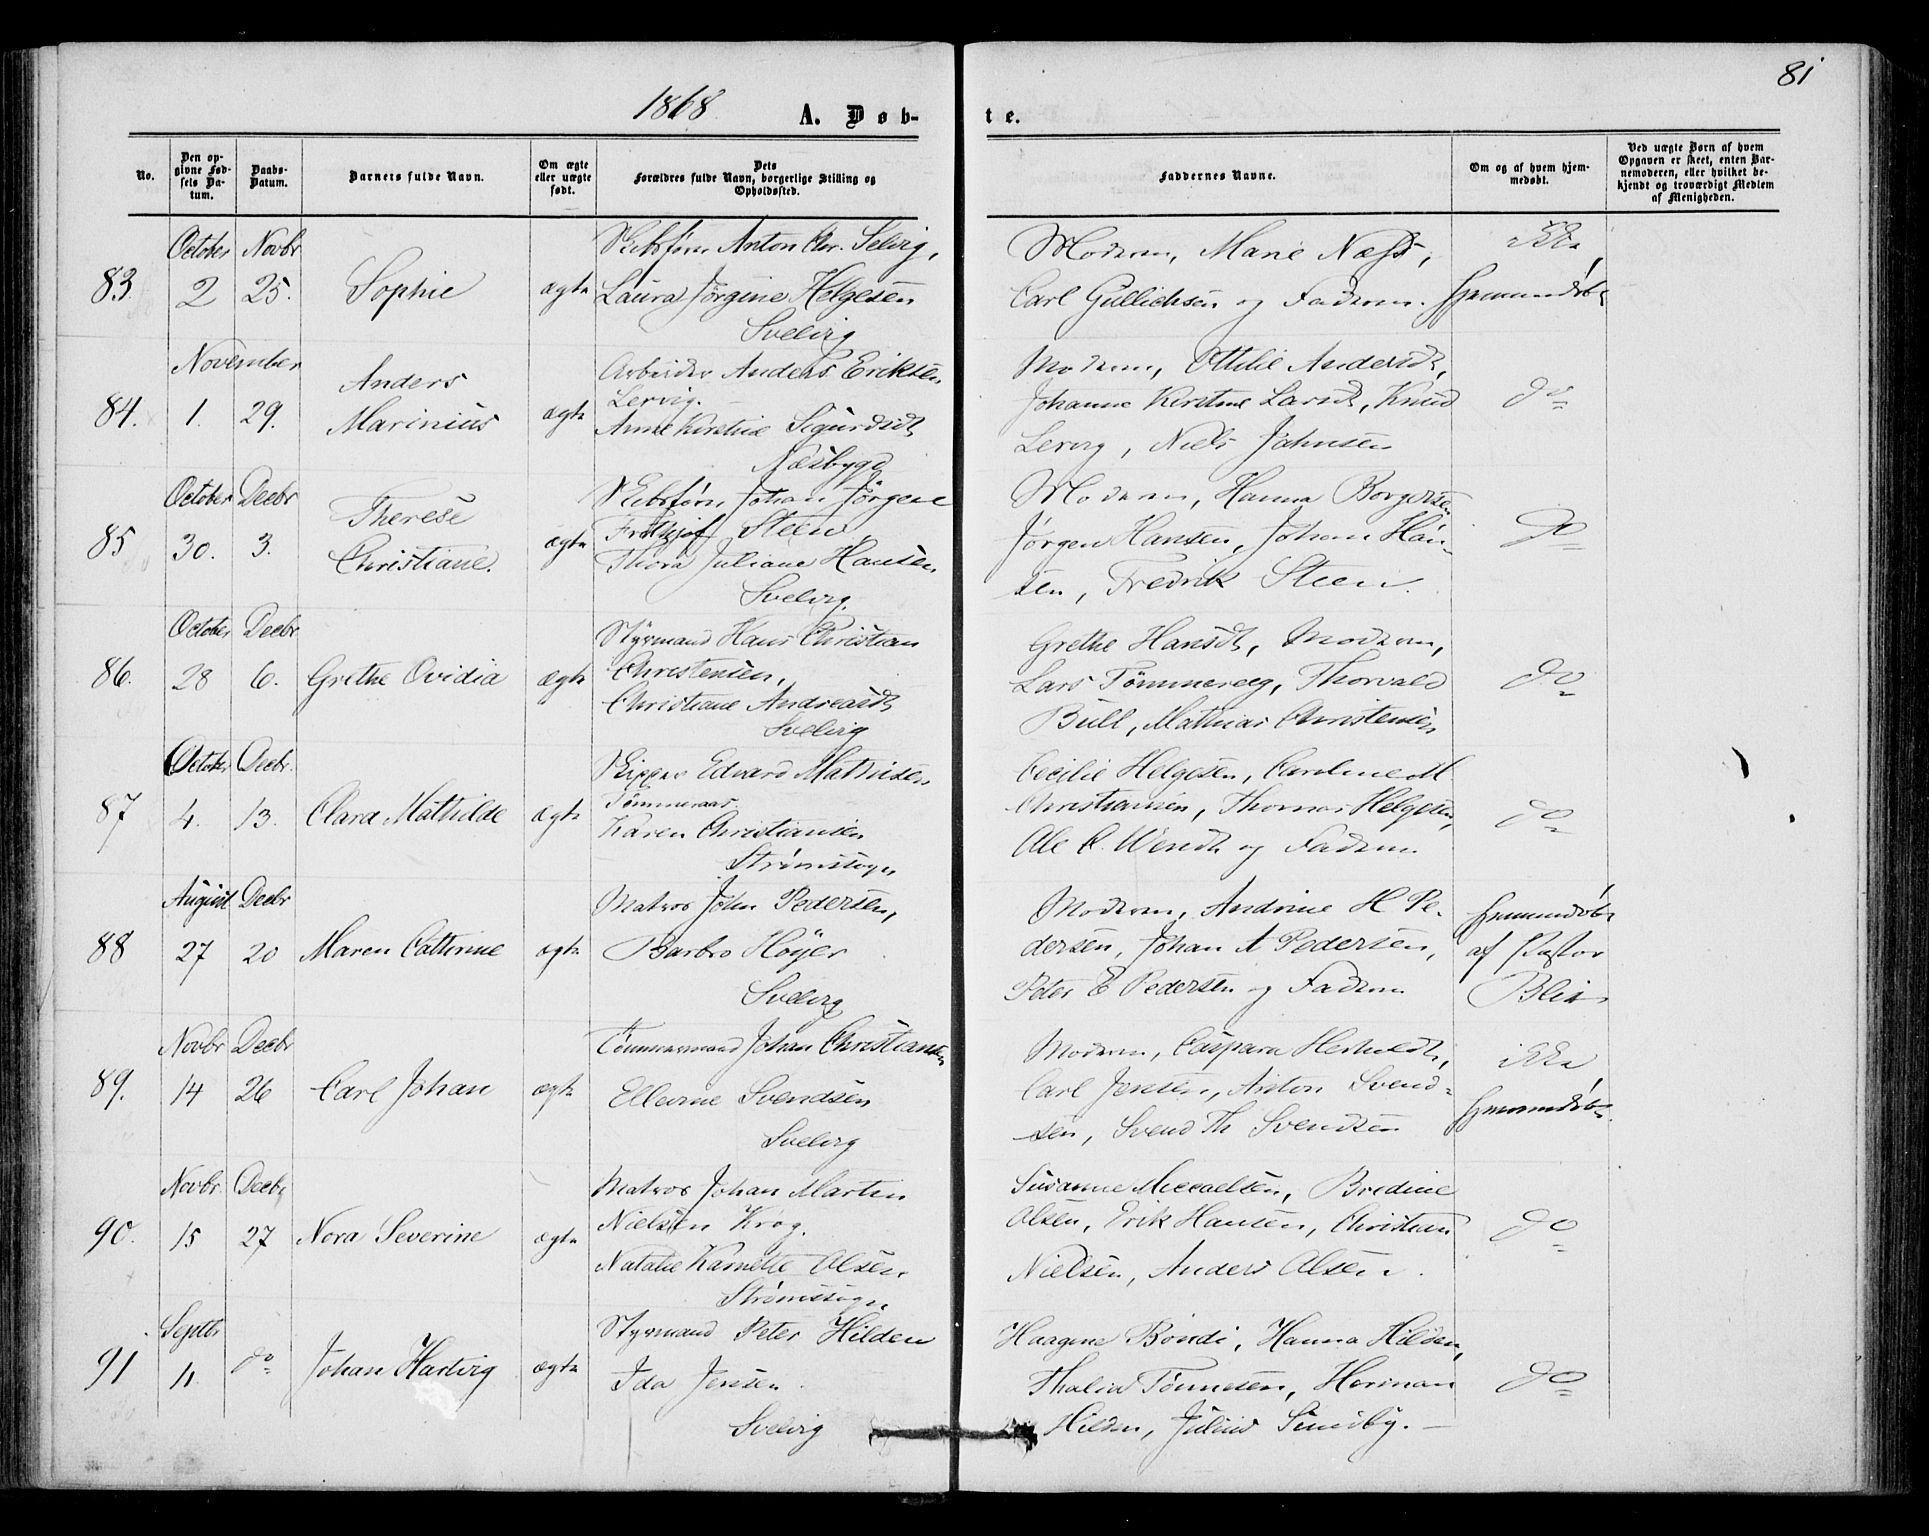 81
1868.
A. Døb-
te.
No.
Den op-
givne Fød-
sels Da-
tum.
Daabs-
Datum.
Barnets fulde Navn.
Om ægte
eller uægte
født.
Dets
Forældres fulde Navn, borgerlige Stilling og
Opholdssted.
Faddernes Navne.
Om og af hvem hjem-
medøbt.
Ved uægte Børn af hvem
Opgaven er skeet, enten Bar-
nemoderen, eller hvilket be-
kjendt og troværdigt Medlem
af Menigheden.
October Novbr
83. 2 25. Sophie ægte
Skibsfører Anton Chr. Selvig,
Laura Jørgine Helgesen
Svelvig
Moderen, Marie Næss,
Carl Gullichsen og Faderen.
ikke
hjemmedøbt
November
84. 1. 29. Anders
Marinius ægte
Arbeider Anders Eriksen
Lervig.
Anne Kirstine Sigurdsdt
Næsbygd
Moderen, Ottilie Andersdt,
Johanne Kirstine Larsdt, Knud
Lervig, Niels Johnsen
do
October Decbr
85 30. 3. Therese
Christiane. ægte
Skibsfører Johan Jörgen
Frithjof Steen
Thora Juliane Hansen
Svelvig.
Moderen, Hanna Borgersen
Jørgen Hansen, Johan Han-
sen, Fredrik Steen.
do
October Decbr
86. 28 6. Grethe Ovidia ægte
Styrmand Hans Christian
Christensen,
Christiane Andreasdt
Svelvig
Grethe Hansdt, Moderen,
Lars Tømmeraas, Thorvald
Bull, Mathias Christensen
do
October Decbr.
87 4. 13. Clara Mathilde ægte
Skipper Edvard Mathisen
Tømmeraas
Karen Christiansen
Strømssogn
Cecilie Helgesen, Caroline M
Christiansen, Thomas Helgesen,
Ole C. Wendt og Faderen
do
August Decbr
88 27 20 Maren Cathrine ægte
Matros John Pedersen,
Barbro Høyer
Svelvig
Moderen, Andrine H Pe-
dersen, Johan A Pedersen,
Peter E Pedersen og Faderen
hjemmedøbt
af Pastor
Blix
Novbr Decbr
89. 14 26 Carl Johan ægte
Tømmermand Johan Christiansen
Ellevine Svendsen
Svelvig
Moderen, Caspara Herholdt,
Carl Jensen, Anton Svend-
sen, Svend Th Svendsen
ikke
hjemmedøbt.
Novbr Decbr
90. 15 27 Nora Severine ægte
Matros Johan Martin
Nielsen Krog.
Natalie Karnette Olsen.
Strømssogn
Susanne Miccaelsen, Bredine
Olsen, Erik Hansen, Christian
Nielsen, Anders Olsen.
do
Septbr
91 11. do Johan Hartvig ægte
Styrmand Peter Hilden
Ida Jensen.
Svelvig
Haagine Bondi, Hanna Hilden,
Thalia Tønnesen, Herman
Hilden, Julius Sundby.
do